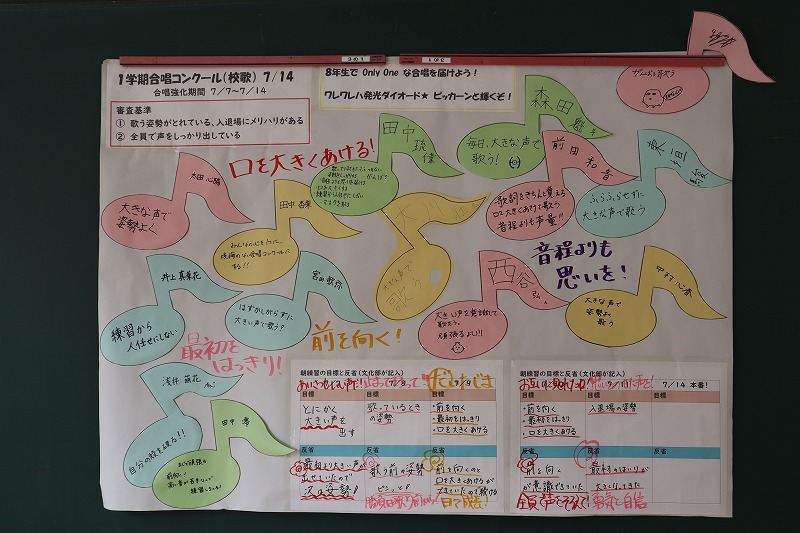 1学期合唱コンクール(校歌) 7/14
合唱強化期間 7/7～7/14
審査基準
① 歌う姿勢がとれている、入退場にメリハリがある
② 全員で声をしっかり出している
8年生で Only One な合唱を届けよう！
ワレワレハ発光ダイオード★ ピッカーンと輝くぞ！
がんばって歌う
口を大きくあける!
太田 心陽
大きな声で
姿勢よく
田中 杏果
みんなの心を1つに、
後悔のない合唱コンクールに
する!!
田中 琉偉
森田
毎日、大きな声で
歌う!
前田 和音
歌詞をきちんと覚える
口を大きくあけて歌う
音程よりも声量!!
東垣
ふらふらせずに
大きな声で歌う
大きな声で
歌う
井上 真菜花
練習から
人任せにしない
宮田 歌弥
はずかしがらずに
大きい声で歌う?
西谷
大きい声を意識して
歌だろう。
頑張るよ!!
音程よりも
思いを!
中村 心春
大きな声で
姿勢よく
歌う
最初を
はっきり!
前を向く!
浅井 萌花
自分の殻を破る!!
田中 澪
朝練習の目標と反省(文化部が記入)
目標
とにかく
大きい声を
出す
目標
歌っているとき
の姿勢
7/9
目標
・前を向く
・最初をはっきり
・口を大きくあける
反省
最初より大きい声が
出せていたので
次は姿勢!
反省
歌う前の姿勢
ピシッと!
反省
前を向くのと
口を大きくあけるが
できていたので続ける
朝練習の目標と反省(文化部が記入)
目標
・前を向く
・最初をはっきり
・口を大きくあける
7/11
目標
入退場の姿勢
7/14 本番!
目標
反省
前を向く
が意識できていた
全員で声をそろえて!
反省
最初のはいりが
大きくなってきた
勇気と自信
反省